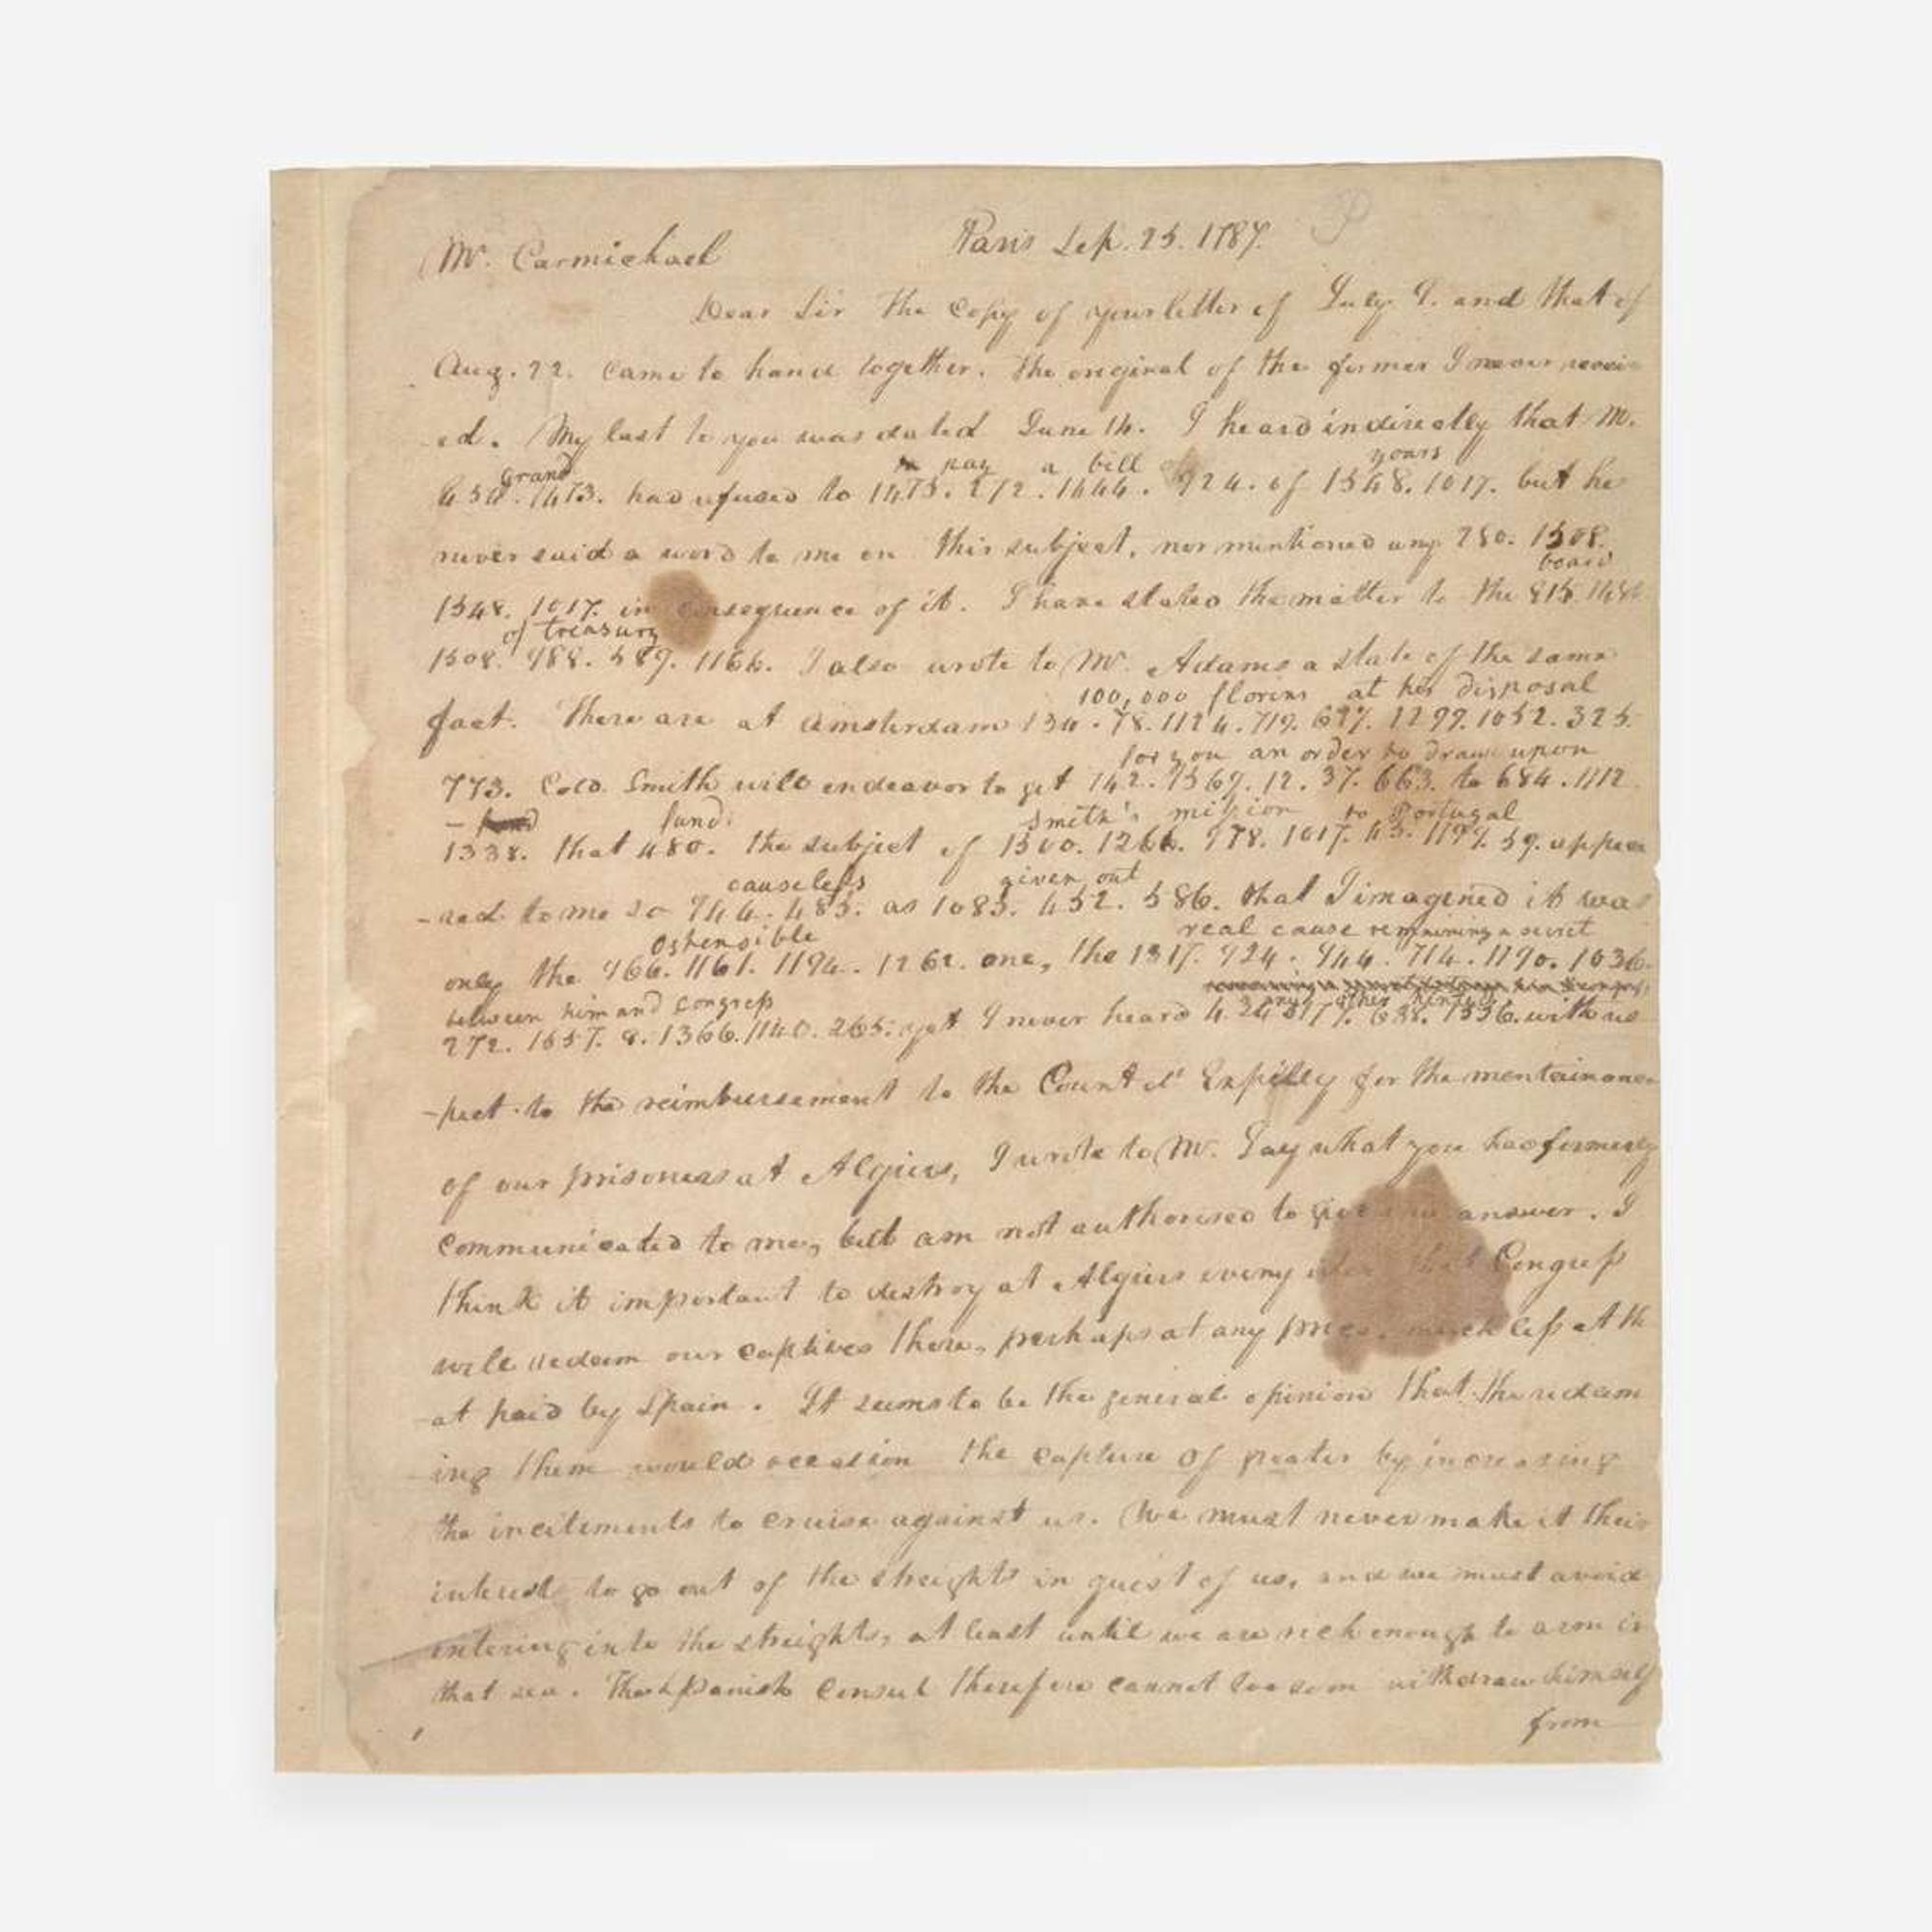 Mr. Carmichael
Paris Sep. 25. 1787.
Dear Sir The Copy of your letter of July 9. and that of
Aug. 22. came to hand together. The original of the former I never receiv
ed. My last to you was dated June 14. I heard indirectly that Mr.
grand pay a bill of yours
1473. had refused to 1475. 272. 1444. 924. of 1548. 1017. but he
never said a word to me on this subject, nor mentioned any 750. 1508.
board
1548. 1017. in consequence of it. I have stated the matter to the 815.
of treasury
1508. 988. 589. 1166. I also wrote to Mr. Adams a state of the same
100,000 florins at her disposal
fact. There are at Amsterdam 134. 78. 1124. 719. 627. 1299. 1052. 325.
for you an order to draw upon
773. Colo. Smith will endeavor to get 142. 1569. 12. 37. 663. to 684. 1112.
fund
1338. that 480. the subject of 1500. 1266. 978. 1017. 45. 1199. 59. appea
smith's mission to Portugal
causeless given out
-red to me so 944. 485. as 1083. 452. 586. that I imagined it was
ostensible real cause remaining a secret
only the 966. 1161. 1194. 1262. one, the 1317. 924. 944. 714. 1190. 1036.
between him and Congress any other hinted
272. 1557. 8. 1366. 1140. 265. yet I never heard 4. 638. 1336. with res
-pect to the reimbursement to the Count d' Expilly for the mentainance
of our prisoners at Algiers, I wrote to Mr. Jay what you had formerly
communicated to me, but am not authorised to give an answer. I
think it important to destroy at Algiers every idea that Congress
will redeem our captives there, perhaps at any price, much less at th
at paid by Spain. It seems to be the general opinion that the redeem
ing them would occasion the capture of greater by increasing
the incitements to cruise against us. We must never make it their
interest to go out of the streights in quest of us, and we must avoid
entering into the streights, at least until we are rich enough to arm in
that sea. The Spanish Consul therefore cannot too soon withdraw himself
from